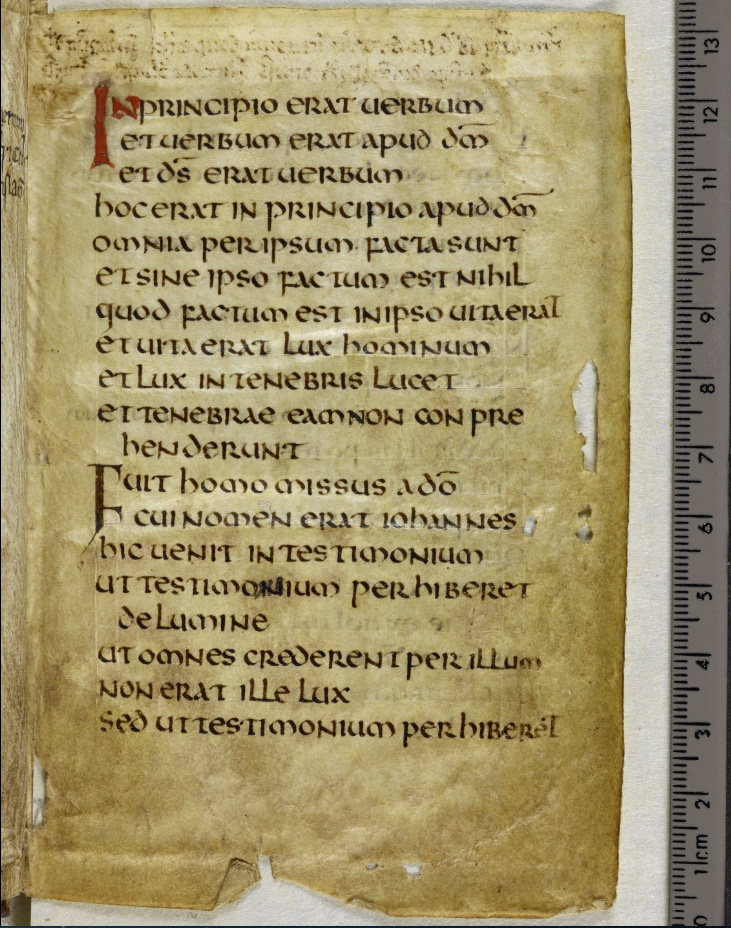 IN PRINCIPIO ERAT UERBUM
ET UERBUM ERAT APUD dm̄
ET ds̄ ERAT UERBUM
hOC ERAT IN PRINCIPIO APUD dm̄
OMNIA PER IPSUM FACTA SUNT
ET SINE IPSO FACTUM EST NIhIL
QUOD FACTUM EST IN IPSO UITA ERAT
ET UITA ERAT LUX hOMINUM
ET LUX IN TENEBRIS LUCET
ET TENEBRAE EAM NON CONPRE
hENDERUNT
FUIT hOMO MISSUS A dō
CUI NOMEN ERAT IOhANNES
hIC UENIT IN TESTIMONIUM
UT TESTIMONIUM PERhIBERET
DE LUMINE
UT OMNES CREDERENT PER ILLUM
NON ERAT ILLE LUX
SED UT TESTIMONIUM PERhIBERET
13
12
11
10
9
8
7
6
5
4
3
2
1cm
0